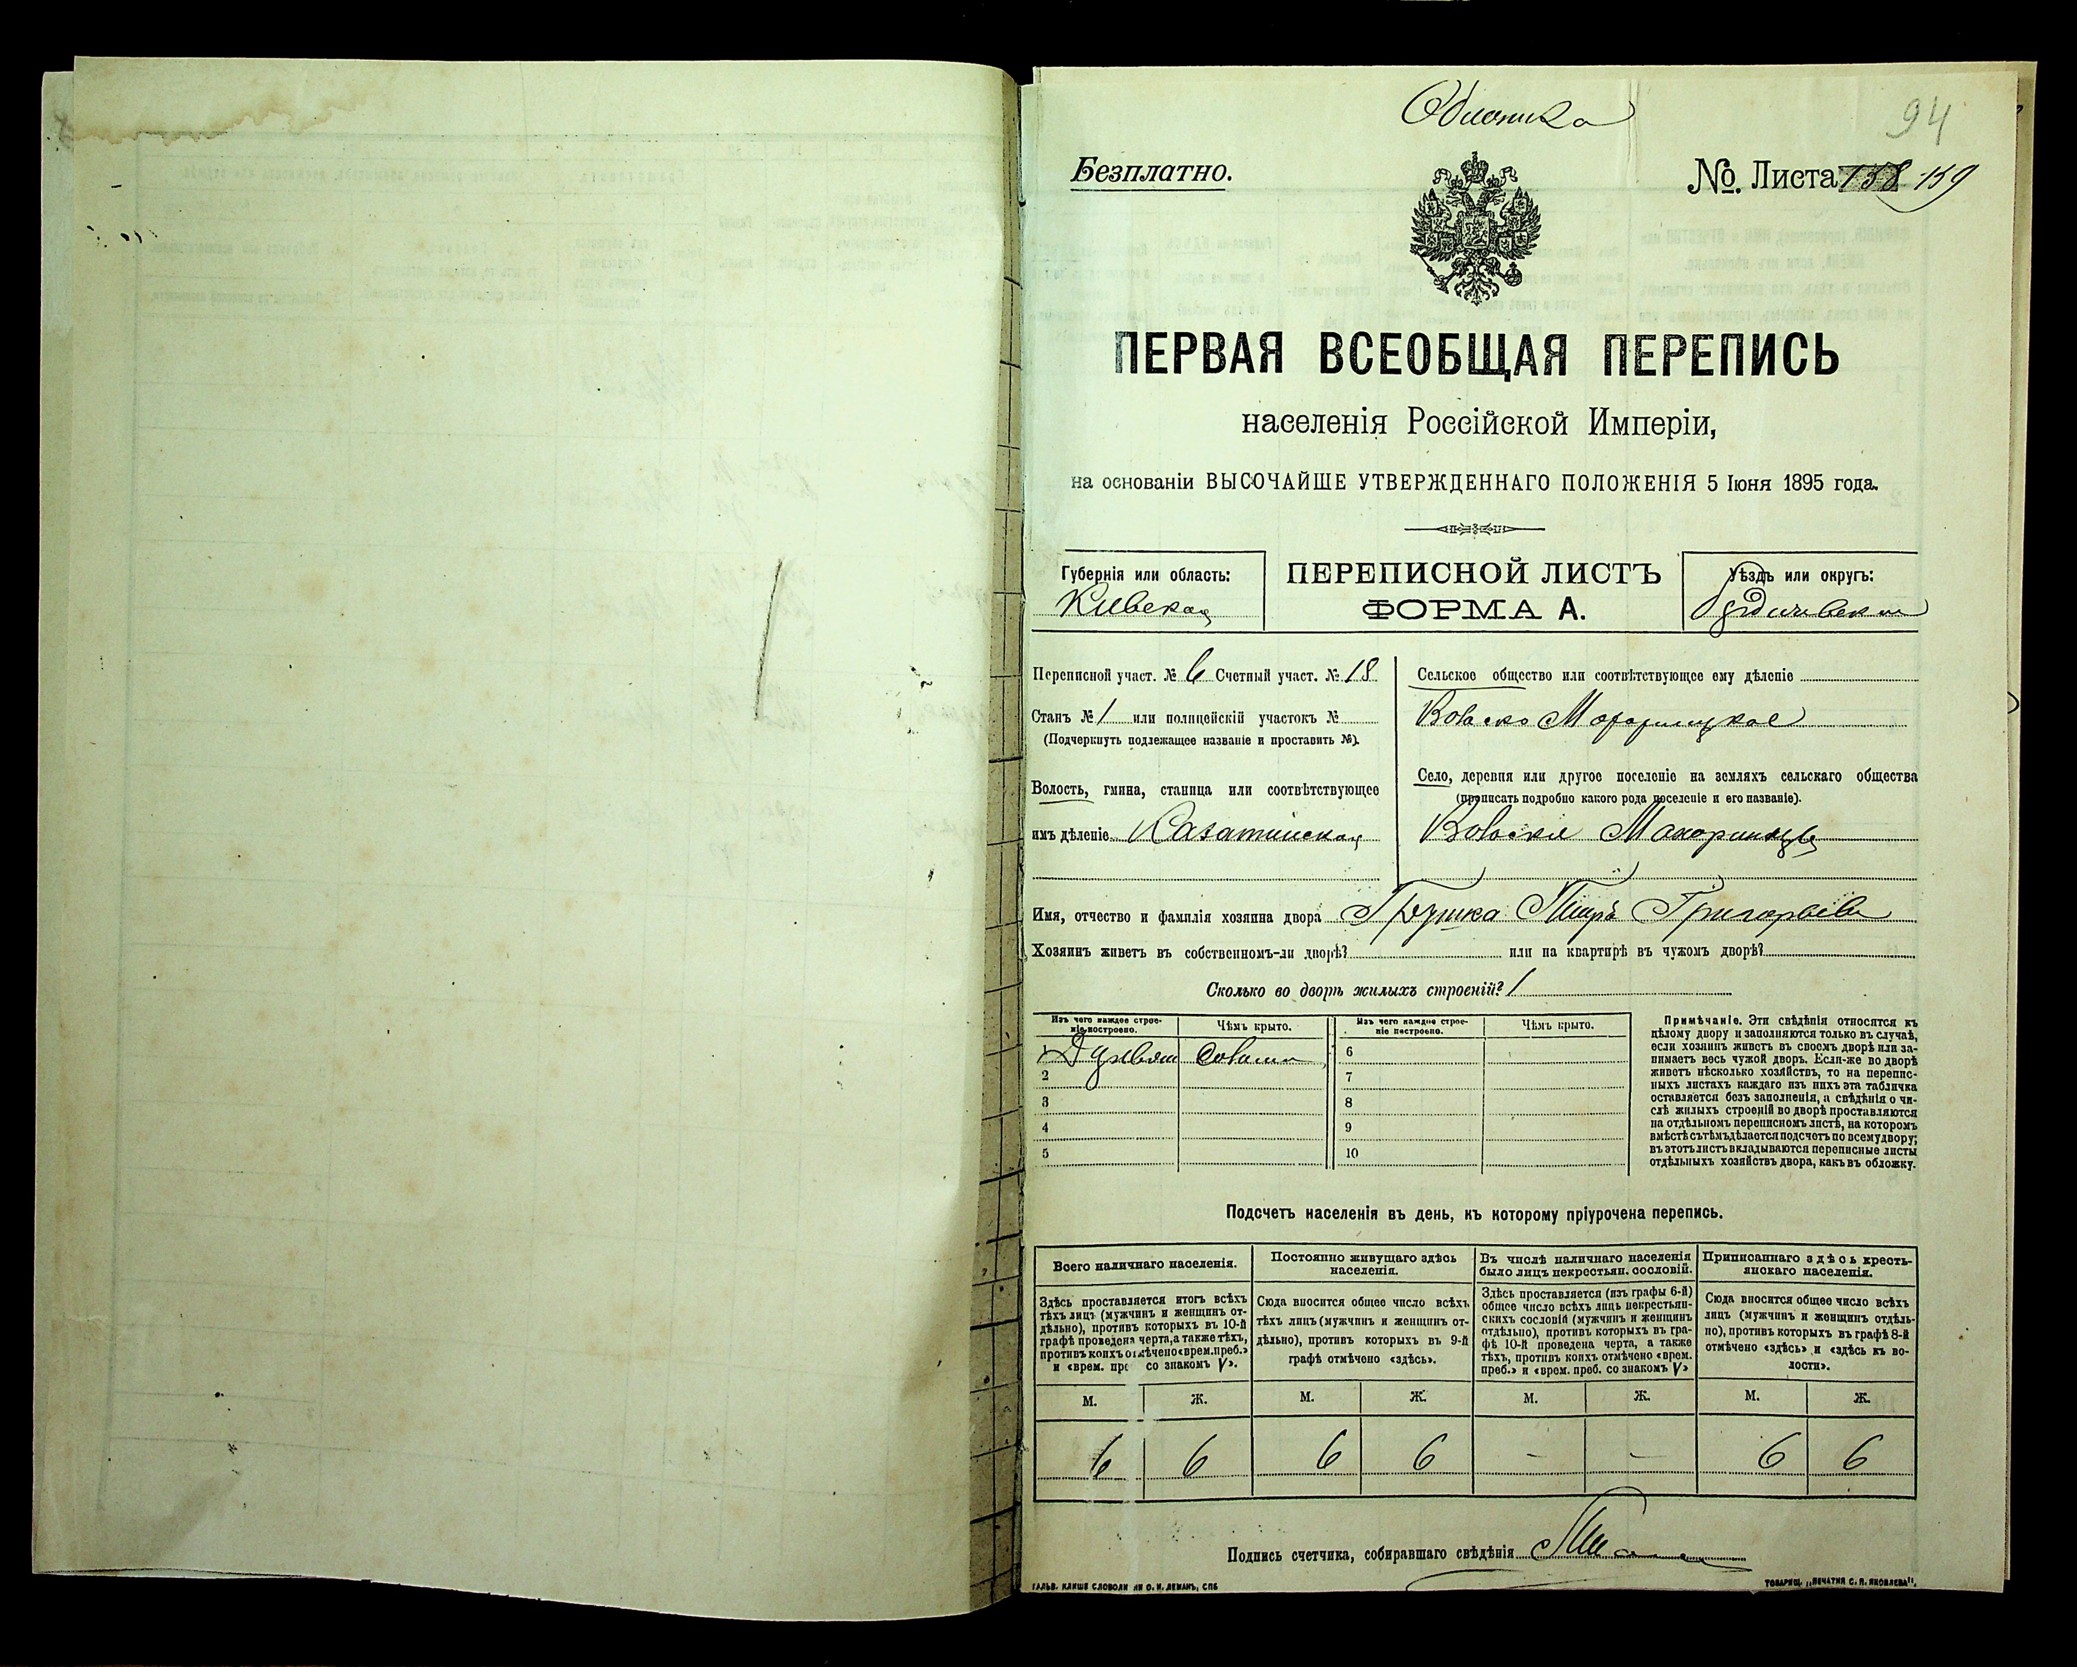 Обложка
94
Безплатно.
№. Листа 158 159
ПЕРВАЯ ВСЕОБЩАЯ ПЕРЕПИСЬ
населенія Россійской Имперіи,
на основаніи ВЫСОЧАЙШЕ УТВЕРЖДЕННАГО ПОЛОЖЕНІЯ 5 Іюня 1895 года.
Губернія или область:
Кіевская
ПЕРЕПИСНОЙ ЛИСТЪ
ФОРМА А.
Уѣздъ или округъ:
Бердичевскій
Переписной участ. № 6 Счетный участ. № 18
Станъ № 1 или полицейскій участокъ №
(Подчеркнуть подлежащее названіе и проставить №).
Волость, гмина, станица или соотвѣтствующее
имъ дѣленіе Казатинская
Сельское общество или соотвѣтствующее ему дѣленіе
Село, деревня или другое поселеніе на земляхъ сельскаго общества
(прописать подробно какого рода поселеніе и его названіе).
Махаринцы
Имя, отчество и фамилія хозяина двора Грушка Григорьевъ
Хозяинъ живетъ въ собственномъ-ли дворѣ? или на квартирѣ въ чужомъ дворѣ?
Сколько во дворѣ жилыхъ строеній? 1
Изъ чего каждое строеніе построено.
Чѣмъ крыто.
Изъ чего каждое строеніе построено.
Чѣмъ крыто.
1 Деревян Солома
2
3
4
5
6
7
8
9
10
Примѣчаніе. Эти свѣдѣнія относятся къ
цѣлому двору и заполняются только въ случаѣ,
если хозяинъ живетъ въ своемъ дворѣ или за-
нимаетъ весь чужой дворъ. Если-же во дворѣ
живетъ нѣсколько хозяйствъ, то на перепис-
ныхъ листахъ каждаго изъ нихъ эта табличка
оставляется безъ заполненія, а свѣдѣнія о чи-
слѣ жилыхъ строеній во дворѣ проставляются
на отдѣльномъ переписномъ листѣ, на которомъ
вмѣстѣ съ тѣмъ дѣлается подсчетъ по всему двору;
въ этотъ листъ вкладываются переписные листы
отдѣльныхъ хозяйствъ двора, какъ въ обложку.
Подсчетъ населенія въ день, къ которому пріурочена перепись.
Всего наличнаго населенія.
Здѣсь проставляется итогъ всѣхъ
тѣхъ лицъ (мужчинъ и женщинъ от-
дѣльно), противъ которыхъ въ 10-й
графѣ проведена черта, а также тѣхъ,
противъ коихъ отмѣчено «врем. преб.»
и «врем. пре со знакомъ V».
Постоянно живущаго здѣсь
населенія.
Сюда вносится общее число всѣхъ
тѣхъ лицъ (мужчинъ и женщинъ от-
дѣльно), противъ которыхъ въ 9-й
графѣ отмѣчено «здѣсь».
Въ числѣ наличнаго населенія
было лицъ некрестьян. сословій.
Здѣсь проставляется (изъ графы 6-й)
общее число всѣхъ лицъ некрестьян-
скихъ сословій (мужчинъ и женщинъ
отдѣльно), противъ которыхъ въ гра-
фѣ 10-й проведена черта, а также
тѣхъ, противъ коихъ отмѣчено «врем.
преб.» и «врем. преб. со знакомъ V»
Приписаннаго здѣсь кресть-
янскаго населенія.
Сюда вносится общее число всѣхъ
лицъ (мужчинъ и женщинъ отдѣль-
но), противъ которыхъ въ графѣ 8-й
отмѣчено «здѣсь» и «здѣсь къ во-
лости».
М. Ж. М. Ж. М. Ж. М. Ж.
6 6 6 6 – – 6 6
Подпись счетчика, собиравшаго свѣдѣнія
ГАЛЬВ. КЛИШЕ СЛОВОЛИ НИ О. И. ЛЕМАНЪ, СПБ
ТОВАРИЩ. „ПЕЧАТНЯ С. П. ЯКОВЛЕВА",